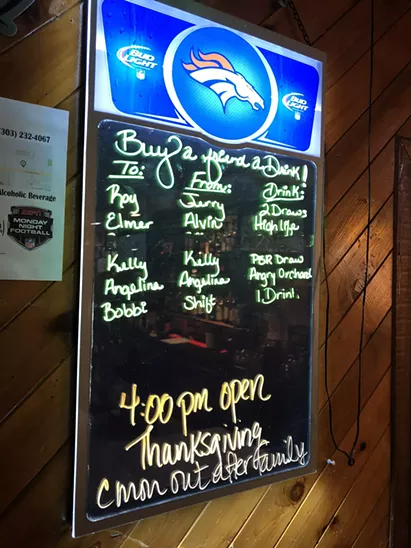 BUD
LIGHT
NFL
BUD
LIGHT
(303) 232-4067
Alcoholic Beverage
ESPN
MONDAY
NIGHT
FOOTBALL
Buy a friend a Drink!
To: From: Drink:
Roy Jerry 2 Draws
Elmer Alvin High life
Kelly Kelly PBR Draw
Angelina Angelina Angry Orchard
Bobbi Shift 1 Drink.
4:00 pm open
Thanksgiving
C'mon out after family